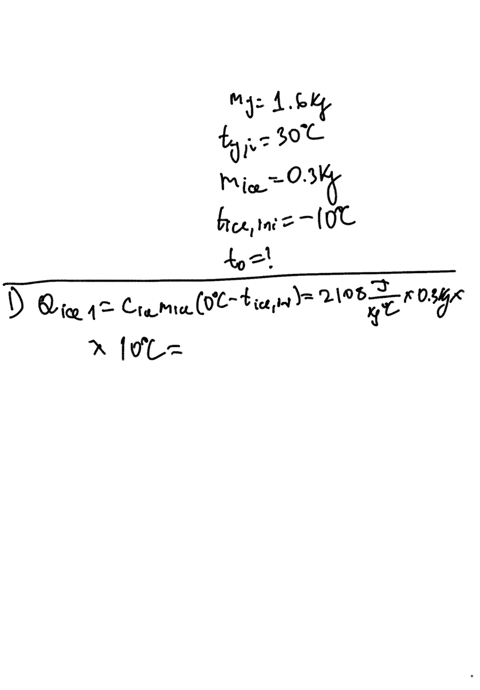 mj = 1.6kg
tj,i = 30°C
mice = 0.3kg
tice,ini = -10°C
t0 = ?
1) Qice 1 = Cice mice (0°C - tice,ini) = 2108 J/kg°C × 0.3kg ×
× 10°C =